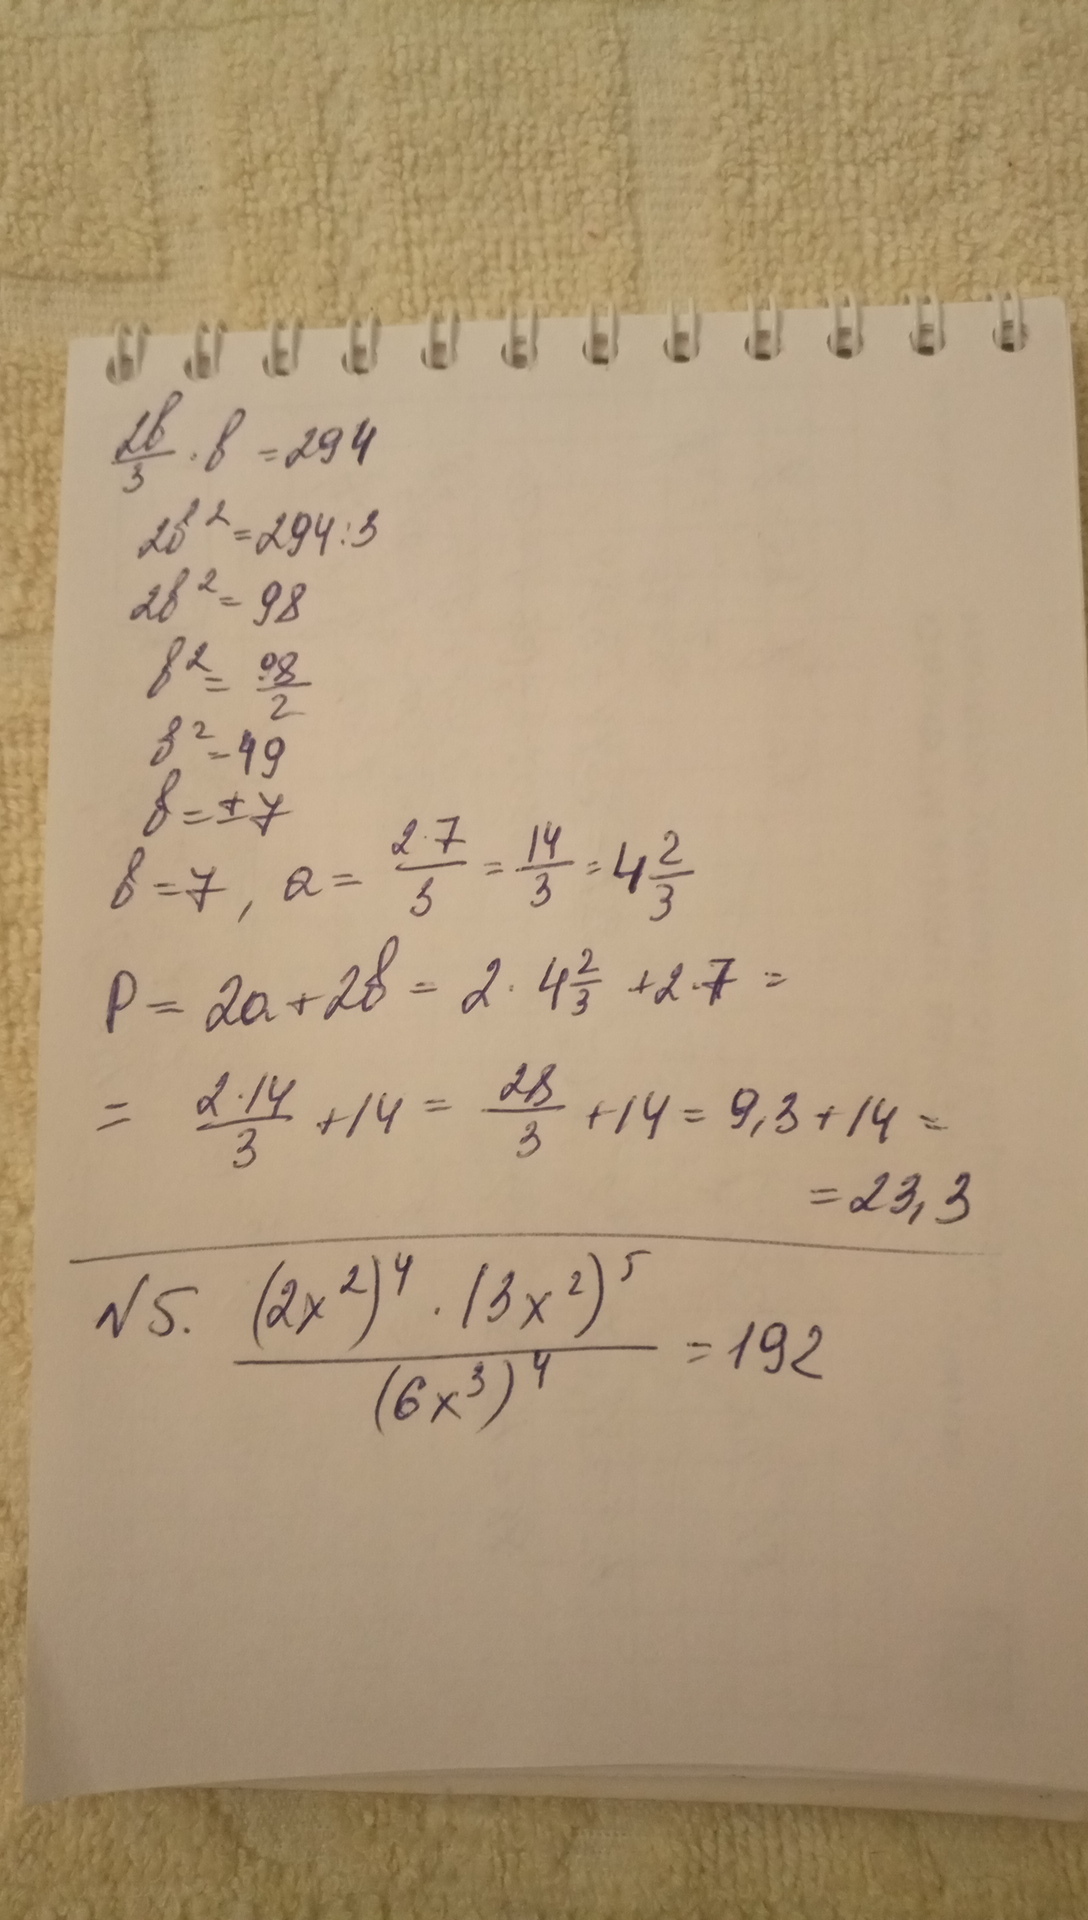 2в/3 · в = 294
2в² = 294 : 3
2в² = 98
в² = 98/2
в² = 49
в = ±7
в = 7, a = 2·7/3 = 14/3 = 4 2/3
P = 2a + 2в = 2 · 4 2/3 + 2·7 =
= 2·14/3 + 14 = 28/3 + 14 = 9,3 + 14 =
= 23,3
№5. (2x²)⁴ · (3x²)⁵ / (6x³)⁴ = 192